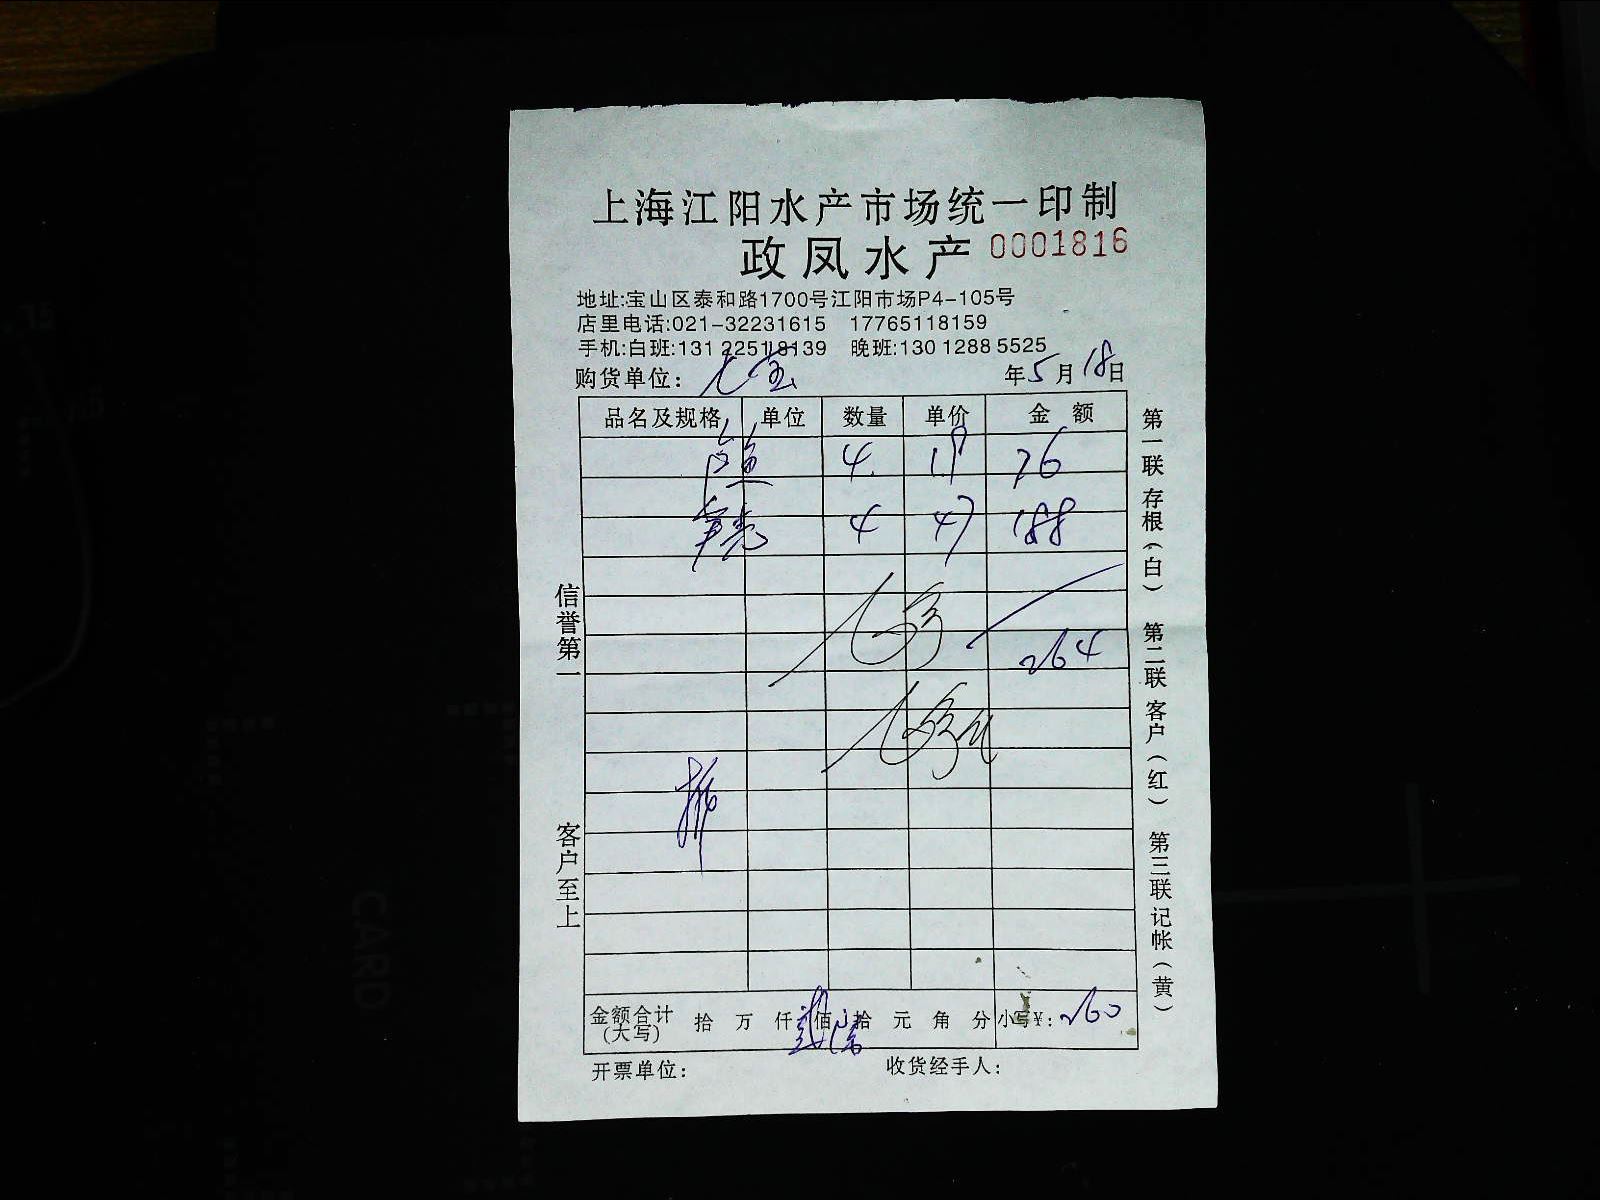 上海江阳水产市场统一印制
政凤水产 0001816
地址:宝山区泰和路1700号江阳市场P4-105号
店里电话:021-32231615 17765118159
手机:白班:131 22518139 晚班:130 1288 5525
购货单位: 七宝 年5月18日
品名及规格 单位 数量 单价 金额
4 19 76
4 47 188
264
金额合计(大写) 拾 万 仟 佰 拾 元 角 分 小写¥: 260
开票单位: 收货经手人:
信誉第一
客户至上
第一联 存根(白) 第二联 客户(红) 第三联 记帐(黄)
CARD